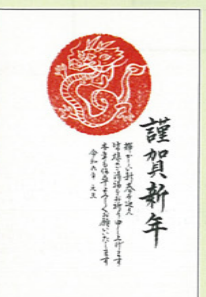 謹賀新年
輝かしい新春を迎え
皆様のご清福をお祈り申し上げます
本年も何卒よろしくお願いいたします
令和六年 元旦